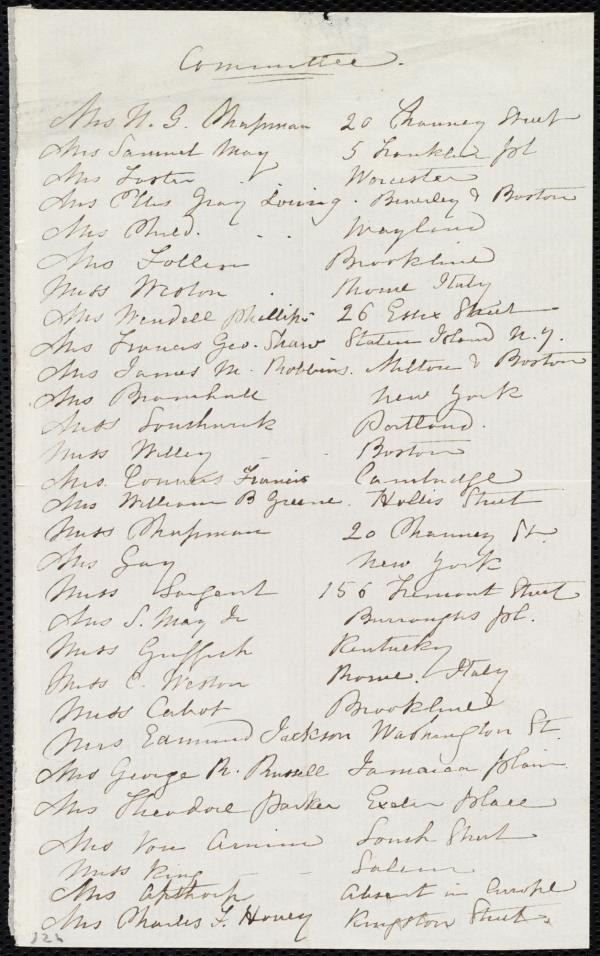 Committee.
Mrs H. G. Chapman 20 Chauncy Street
Mrs Samuel May 5 Franklin Pl
Mrs Foster Worcester
Mrs Ellis Gray Loring. Beverley & Boston
Mrs Child. Wayland
Mrs Follen Brookline
Miss Weston Rome Italy
Mrs Wendell Phillips 26 Essex Street
Mrs Francis Geo. Shaw Staten Island N. Y.
Mrs James M. Robbins. Milton & Boston
Mrs Bramhall New York
Miss Southwick Portland.
Miss Willey Boston
Mrs. Convers Francis Cambridge
Mrs William B Greene. Hollis Street
Miss Chapman 20 Chauncy St.
Mrs Gay New York
Miss Sargent 156 Tremont Street
Mrs S. May Jr Burroughs Pl.
Miss Griffith Kentucky
Miss C. Weston Rome. Italy
Miss Cabot Brookline
Mrs Edmund Jackson Washington St.
Mrs George R. Russell Jamaica Plain
Mrs Theodore Parker Exeter Place
Mrs Von Arnim South Street
Miss King Salem
Mrs Apthorp Absent in Europe
Mrs Charles F. Hovey Kingston Street.